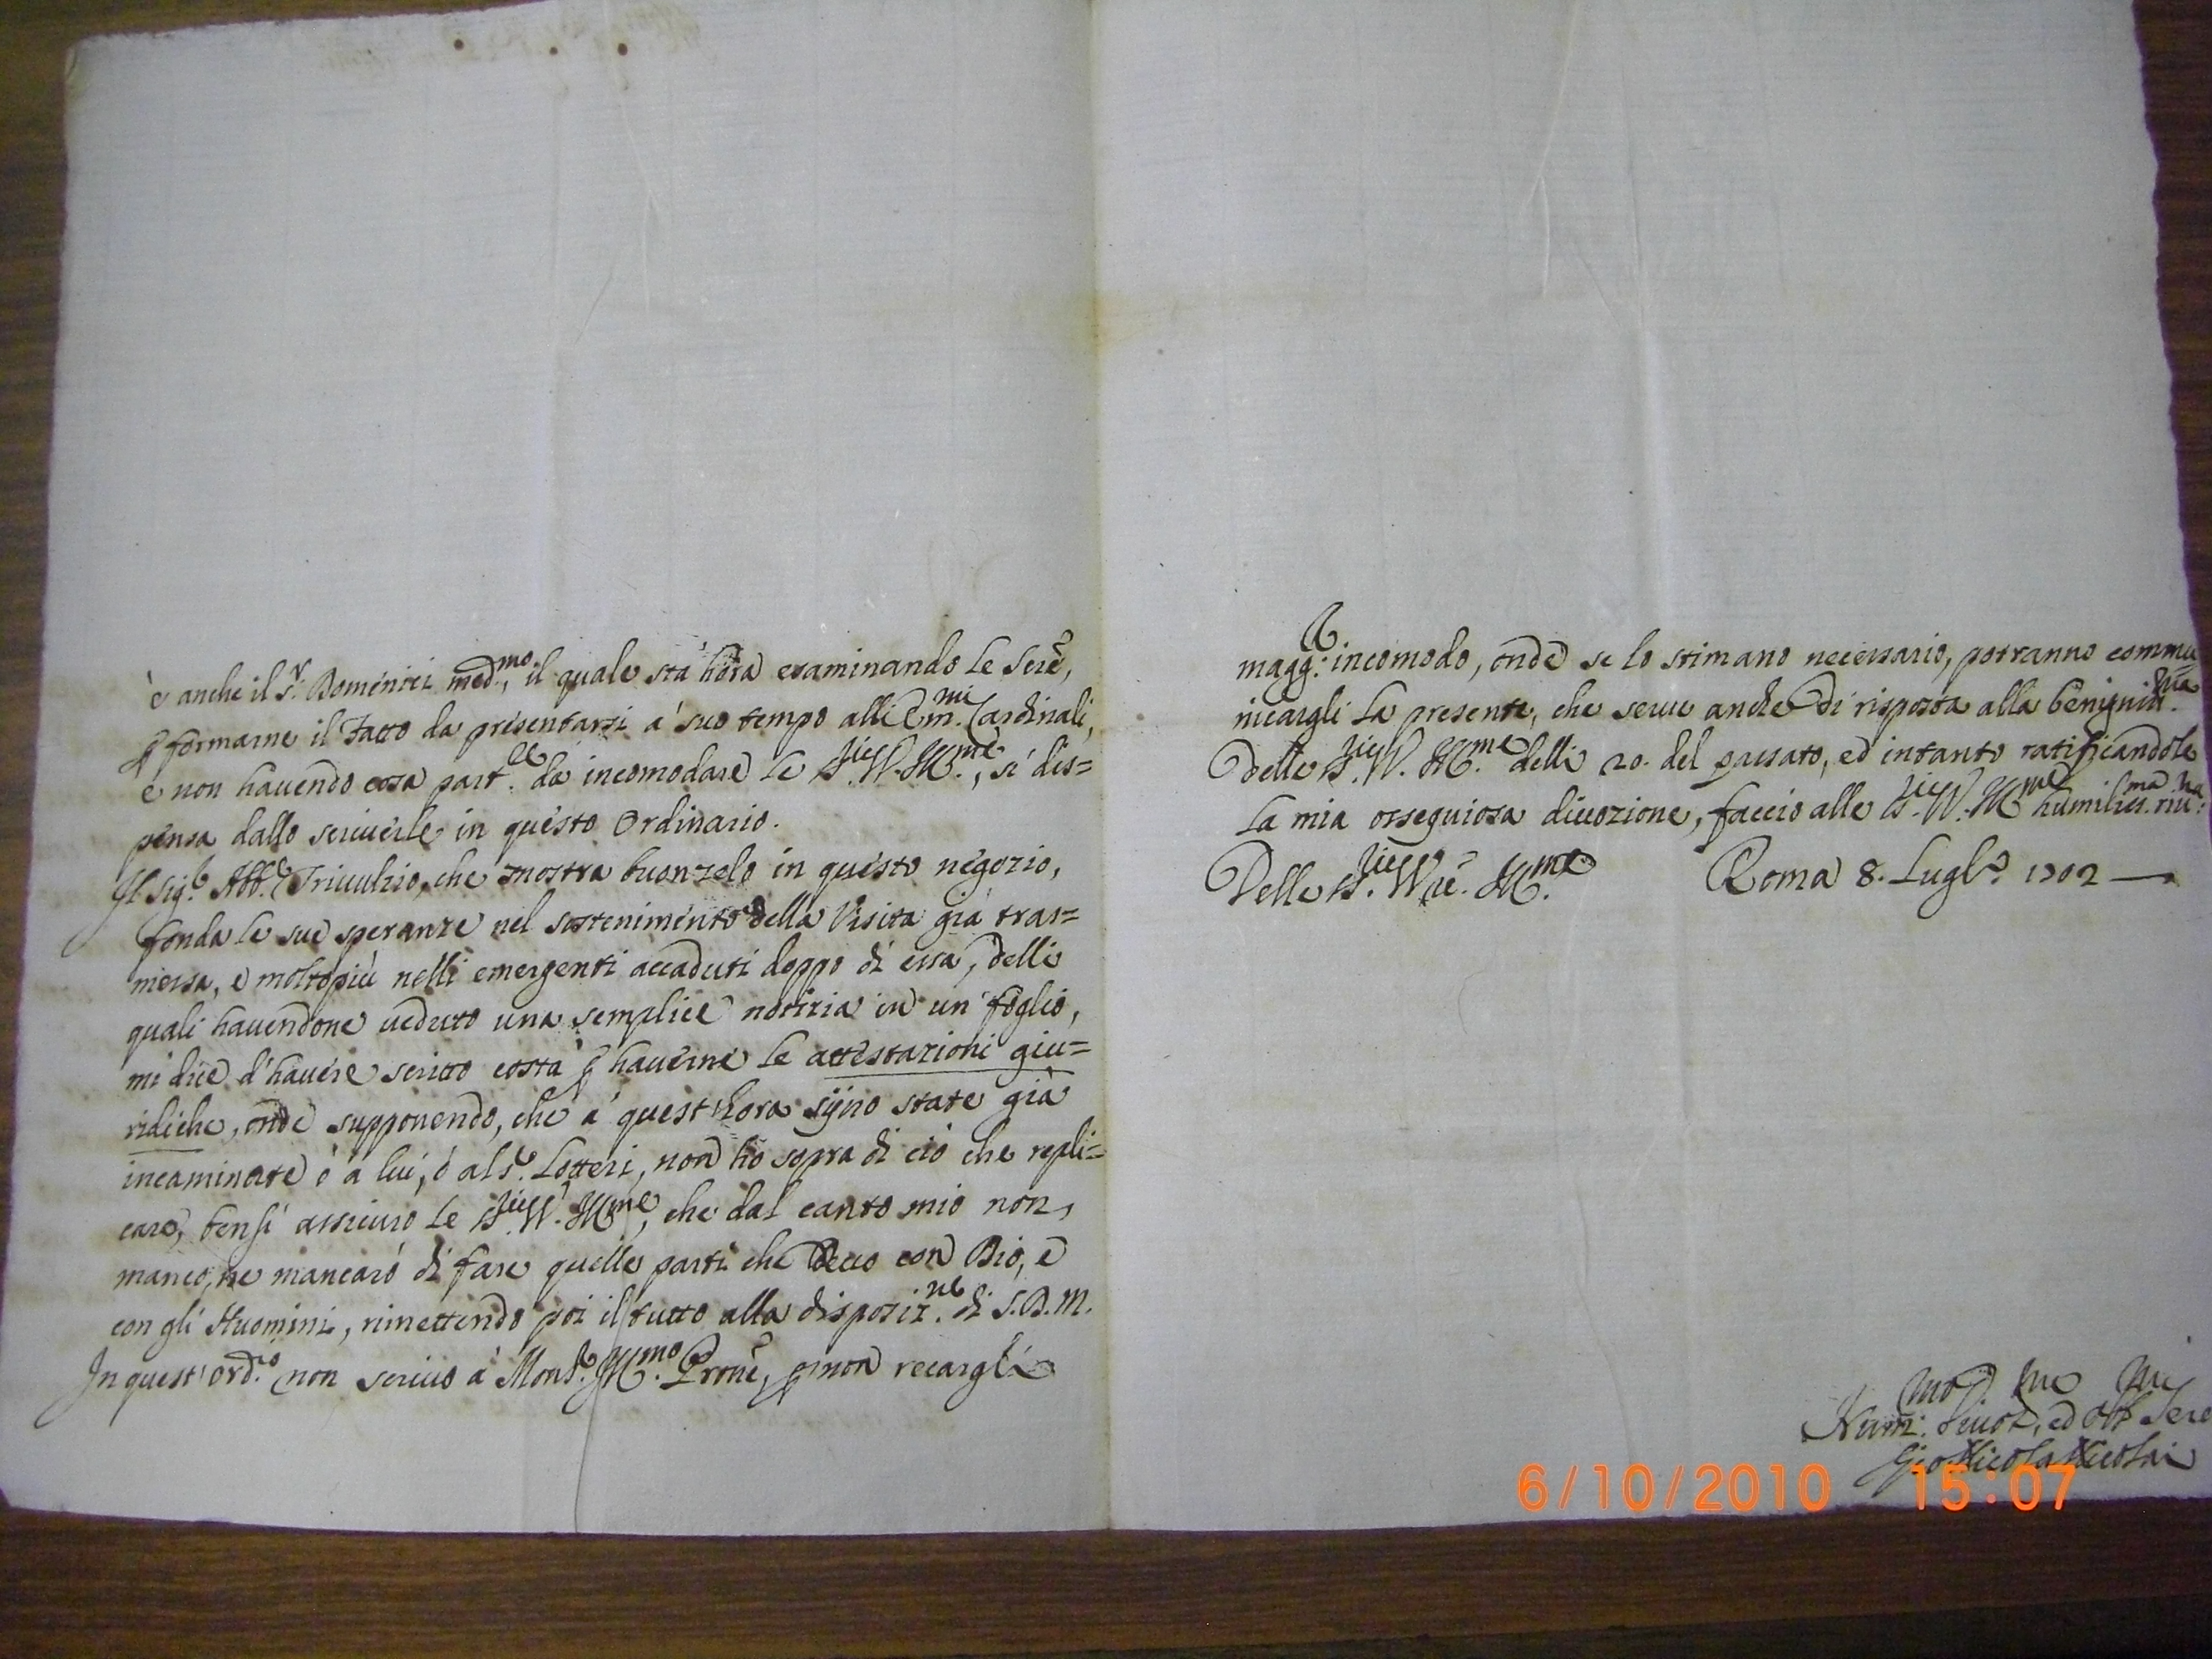 è anche il S.r Dominici med.mo, il quale stà hora esaminando le Scrê,
p formarne il Fatto da presentarsi a' suo tempo alli Em.mi Cardinali,
e non havendo cosa part.le da incomodare le S.rie V. Ill.me, si dis=
pensa dallo scriverle in questo Ordinario.
Il Sig.r Abb.e Trivulzio, che mostra buon zelo in questo negozio,
fonda le sue speranze nel sostenimento della Visita già tras=
messa, e molto più nelli emergenti accaduti doppo di essa, delli
quali havendone veduto una semplice notizia in un' foglio,
mi dice d'havere scritto costà p haverne le attestazioni giu=
ridiche, onde supponendo, che a' quest'hora sijno state già
incaminate ò a lui, ò al S.r Lotteri, non hò sopra di ciò che repli=
care, bensì assicuro le S.rie V. Ill.me, che dal canto mio non
manco, ne mancarò di fare quelle parti che devo con Dio, e
con gli Huomini, rimettendo poi il tutto alla disposiz.ne di S.D.M.
In quest' ord.io non scrivo à Mons.r Ill.mo Prone, p non recargli
magg.r incomodo, onde se lo stimano necessario, potranno commu
nicargli la presente, che serve anche di risposta alla benigniss.ma
delle S.rie V. Ill.me delli 20. del passato, ed intanto ratificandole
la mia ossequiosa divozione, faccio alle S.rie V. Ill.me humiliss.ma riv.za
Delle S.rie V.re Ill.me Roma 8. Lugl.o 1702
Hum.mo Divot.mo, ed Obb.mo Ser.
Gio. Nicola Nicolai
6/10/2010 15:07